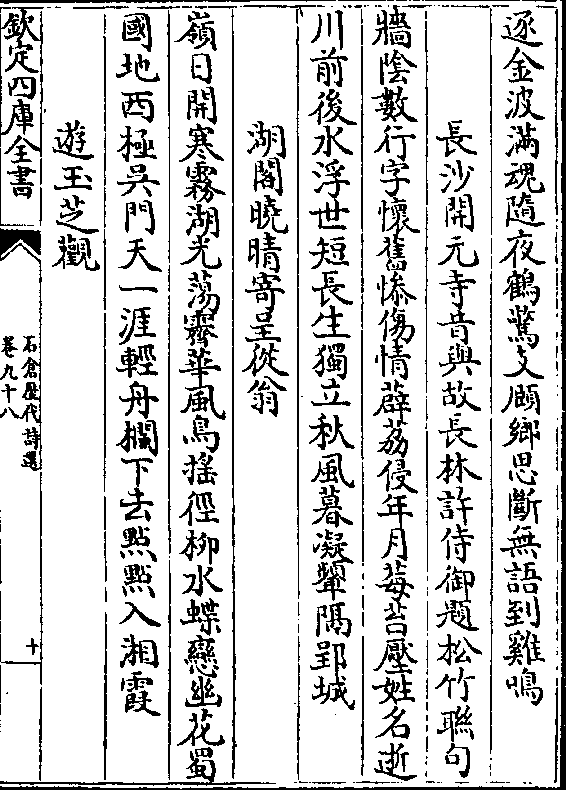 逐金波滿魂隨夜鶴驚支頤鄉思斷無語到雞鳴
長沙開元寺昔與故長林許侍御題松竹聯句
牆陰數行字懷舊慘傷情薜荔侵年月莓苔壓姓名逝
川前後水浮世短長生獨立秋風暮凝顰隔郢城
湖閣曉晴寄呈從翁
嶺日開寒霧湖光蕩霽華風鳥搖徑柳水蝶戀幽花蜀
國地西極吳門天一涯輕舟欄下去點點入湘霞
遊玉芝觀
欽定四庫全書
石倉歷代詩選
卷九十八
十